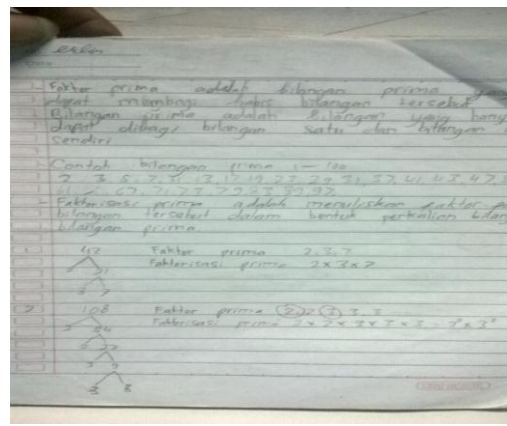 erlin
1- Faktor prima adalah bilangan prima yang
dapat membagi habis bilangan tersebut
Bilangan prima adalah bilangan yang hany
dapat dibagi bilangan satu dan bilangan
sendiri
Contoh bilangan prima 1-100
2 3 5, 7, 11, 13, 17, 19, 23, 29, 31, 37, 41, 43, 47,
61, 67, 71, 73, 79, 83, 89, 97
2 Faktorisasi prima adalah menuliskan faktor p
bilangan tersebut dalam bentuk perkalian bilan
bilangan prima.
1 42 Faktor prima 2, 3, 7
2 21 Faktorisasi prima 2 x 3 x 7
3 7
2 108 Faktor prima 2, 2, 3, 3, 3
2 54 Faktorisasi prima 2 x 2 x 3 x 3 x 3 =
2 27
3 9
3 3